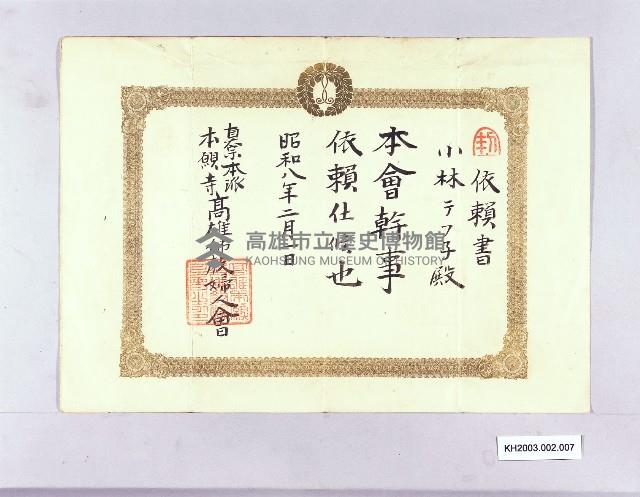 依賴書
小林テフ子殿
本會幹事
依賴仕候也
昭和八年二月 日
真宗本派
本願寺高雄佛教婦人會
高雄市立歷史博物館
KAOHSIUNG MUSEUM OF HISTORY
KH2003.002.007